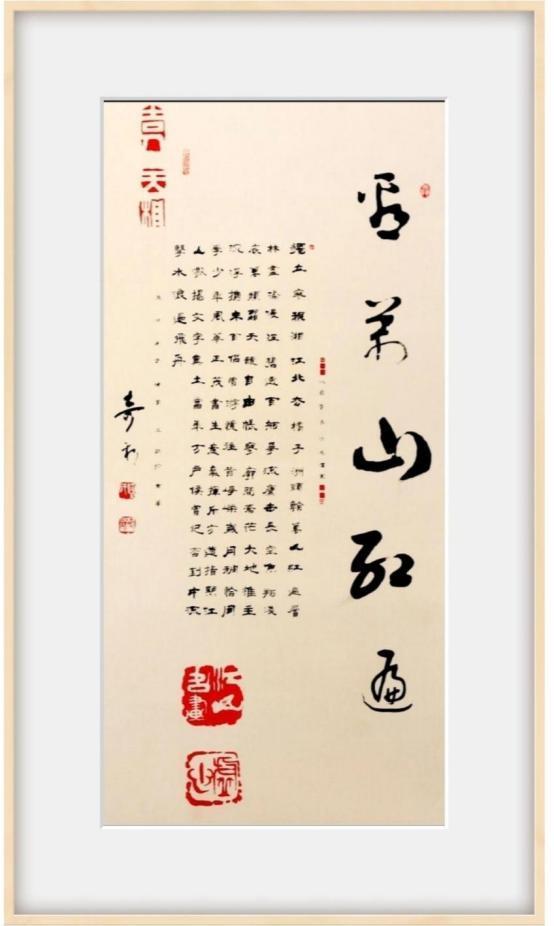 看萬山紅遍
獨立寒秋湘江北去橘子洲頭看萬山紅遍層
林盡染漫江碧透百舸爭流鷹擊長空魚翔淺
底萬類霜天競自由悵寥廓問蒼茫大地誰主
沉浮攜來百侶曾游憶往昔崢嶸歲月稠恰同
學少年風華正茂書生意氣揮斥方遒指點江
山激揚文字糞土當年万戶侯曾記否到中流
擊水浪遏飛舟